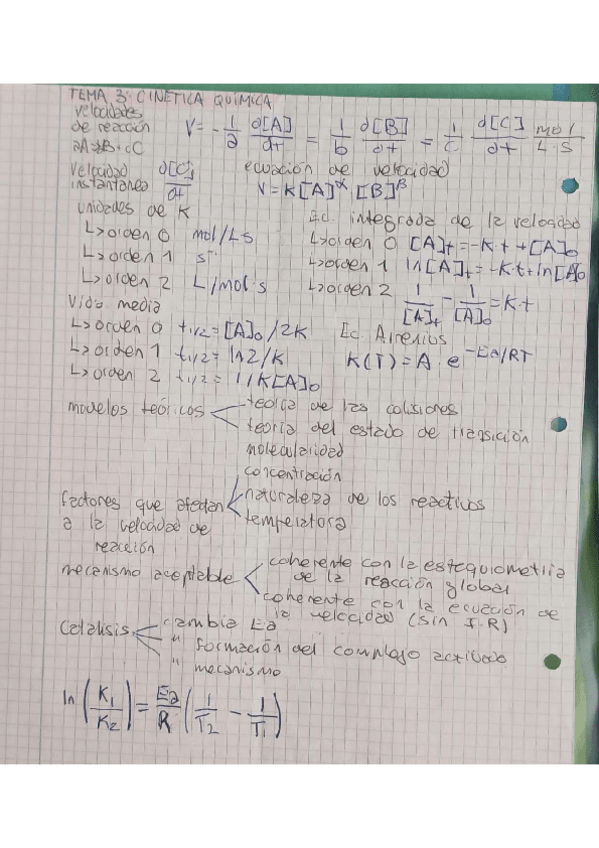 TEMA 3: CINÉTICA QUÍMICA
velocidades
de reacción
V = -1/a d[A]/dt = 1/b d[B]/dt = 1/c d[C]/dt mol/L·S
velocidad
instantanea d[C]/dt
ecuación de velocidad
V = K[A]^α [B]^β
unidades de K
↳ orden 0 mol/Ls
↳ orden 1 s⁻¹
↳ orden 2 L/mol s
Ec. integrada de la velocidad
↳ orden 0 [A]t = -K·t + [A]0
↳ orden 1 ln[A]t = -K·t + ln[A]0
↳ orden 2 1/[A]t - 1/[A]0 = K·t
vida media
↳ orden 0 t1/2 = [A]0/2K
↳ orden 1 t1/2 = ln2/K
↳ orden 2 t1/2 = 1/K[A]0
K(T) = A · e^-Ea/RT
modelos teóricos
teoría de las colisiones
teoría del estado de transición
molecularidad
factores que afectan
a la velocidad de
reacción
concentración
naturaleza de los reactivos
temperatura
mecanismo aceptable
coherente con la estequiometria
de la reacción global
coherente con la ecuación de
la velocidad (sin I.R)
catalisis
cambia Ea
" formación del complejo activado
" mecanismo
ln (K1/K2) = Ea/R (1/T2 - 1/T1)